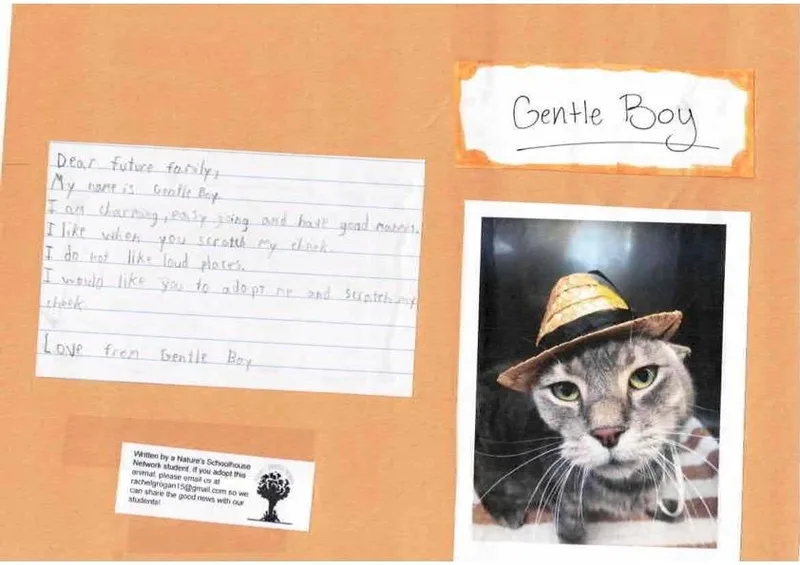 Gentle Boy
Dear future family,
My name is Gentle Boy
I am charming, easy going and have good manners.
I like when you scratch my cheek.
I do not like loud places.
I would like you to adopt me and scratch my
cheek.
Love from Gentle Boy
Written by a Nature's Schoolhouse
Network student. if you adopt this
animal, please email us at
rachelgrogan15@gmail.com so we
can share the good news with our
students!